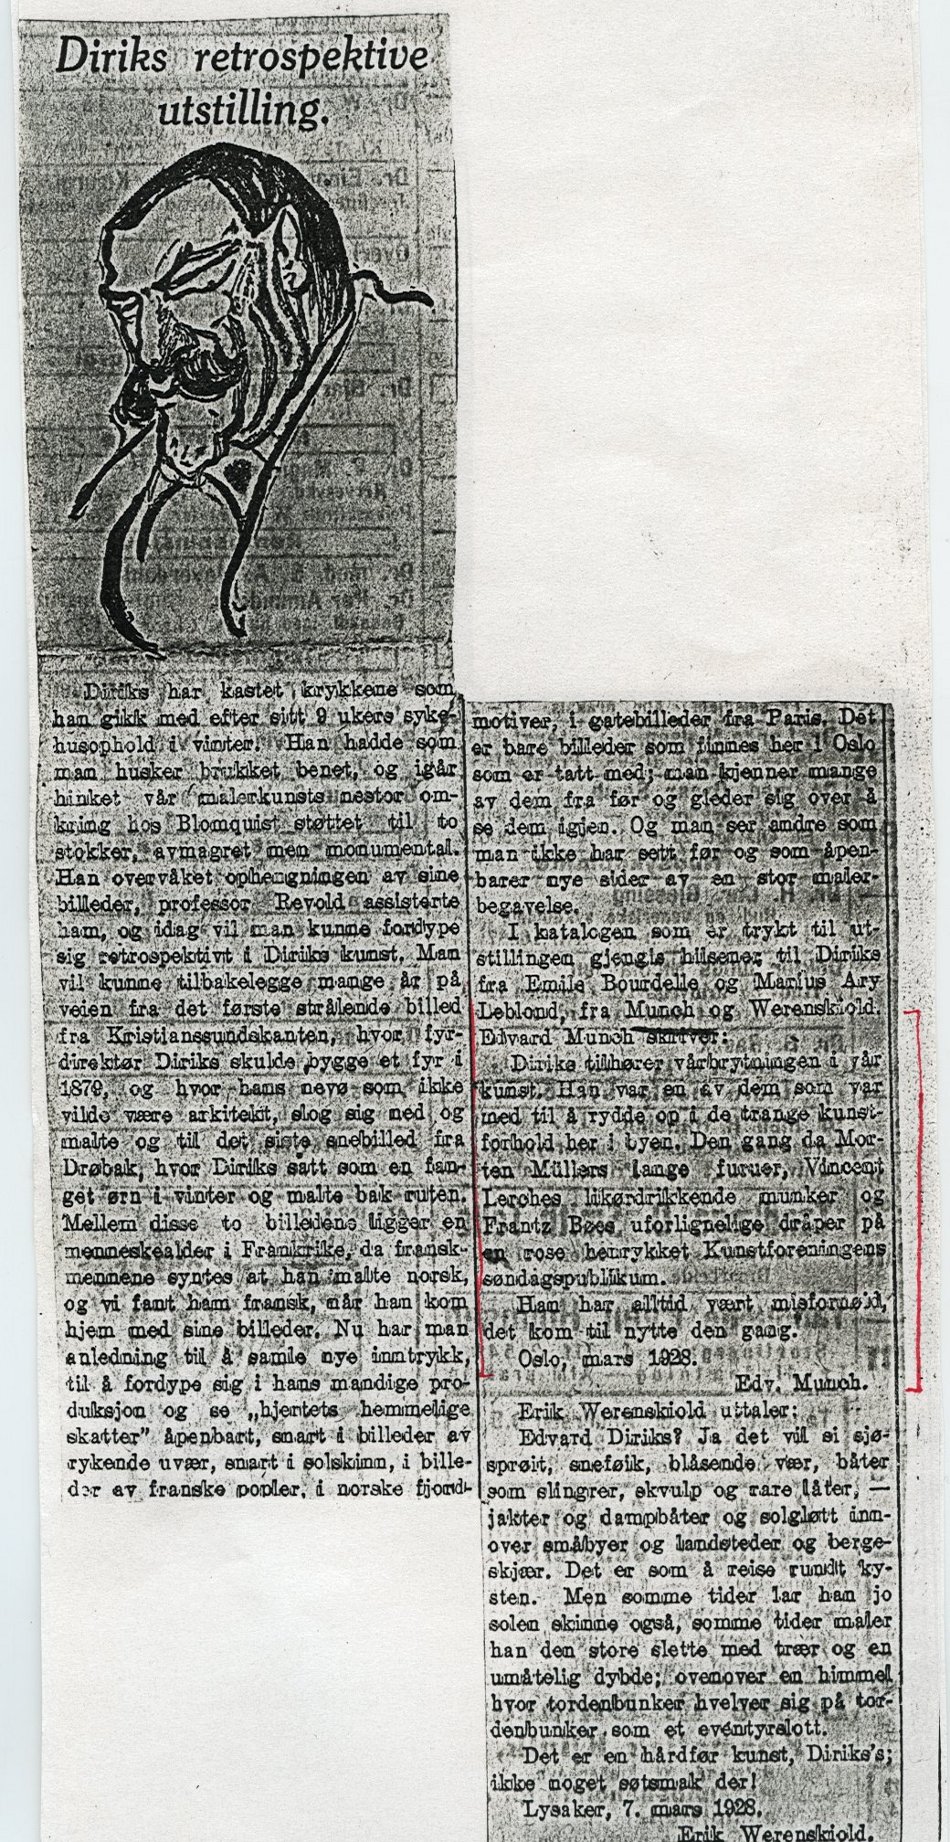 Diriks retrospektive
utstilling.
Diriks har kastet krykkene som
han gikk med efter sitt 9 ukers syke-
husophold i vinter. Han hadde som
man husker brukket benet, og igår
hinket vår malerkunsts nestor om-
kring hos Blomquist støttet til to
stokker, avmagret men monumental.
Han overvåket ophengningen av sine
billeder, professor Revold assisterte
ham, og idag vil man kunne fordype
sig retrospektivt i Diriks kunst. Man
vil kunne tilbakelegge mange år på
veien fra det første strålende billed
fra Kristianssundskanten, hvor fyr-
direktør Diriks skulde bygge et fyr i
1879, og hvor hans nevø som ikke
vilde være arkitekt, slog sig ned og
malte og til det siste snebilled fra
Drøbak, hvor Diriks satt som en fan-
get ørn i vinter og malte bak ruten.
Mellem disse to billedene ligger en
menneskealder i Frankrike, da fransk-
mennene syntes at han malte norsk,
og vi fant ham fransk, når han kom
hjem med sine billeder. Nu har man
anledning til å samle nye inntrykk,
til å fordype sig i hans mandige pro-
duksjon og se „hjertets hemmelige
skatter" åpenbart, snart i billeder av
rykende uvær, snart i solskinn, i bille-
der av franske popler, i norske fjord-
motiver, i gatebilleder fra Paris. Det
er bare billeder som finnes her i Oslo
som er tatt med; man kjenner mange
av dem fra før og gleder sig over å
se dem igjen. Og man ser andre som
man ikke har sett før og som åpen-
barer nye sider av en stor maler-
begavelse.
I katalogen som er trykt til ut-
stillingen gjengis hilsener til Diriks
fra Emile Bourdelle og Marius Ary
Leblond, fra Munch og Werenskiold.
Edvard Munch skriver:
Diriks tilhører vårbrytningen i vår
kunst. Han var en av dem som var
med til å rydde op i de trange kunst-
forhold her i byen. Den gang da Mor-
ten Müllers lange furuer, Vincent
Lerches likørdrikkende munker og
Frantz Bøes uforlignelige dråper på
en rose henrykket Kunstforeningens
søndagspublikum.
Han har alltid vært misfornøid,
det kom til nytte den gang.
Oslo, mars 1928.
Edv. Munch.
Erik Werenskiold uttaler:
Edvard Diriks? Ja det vil si sjø-
sprøit, sneføik, blåsende vær, båter
som slingrer, skvulp og rare låter, —
jakter og dampbåter og solgløtt inn-
over småbyer og landsteder og berge-
skjær. Det er som å reise rundt ky-
sten. Men somme tider lar han jo
solen skinne også, somme tider maler
han den store slette med trær og en
umåtelig dybde; ovenover en himmel
hvor tordenbunker hvelver sig på tor-
denbunker som et eventyrslott.
Det er en hårdfør kunst, Diriks's;
ikke noget søtsmak der!
Lysaker, 7. mars 1928.
Erik Werenskiold.